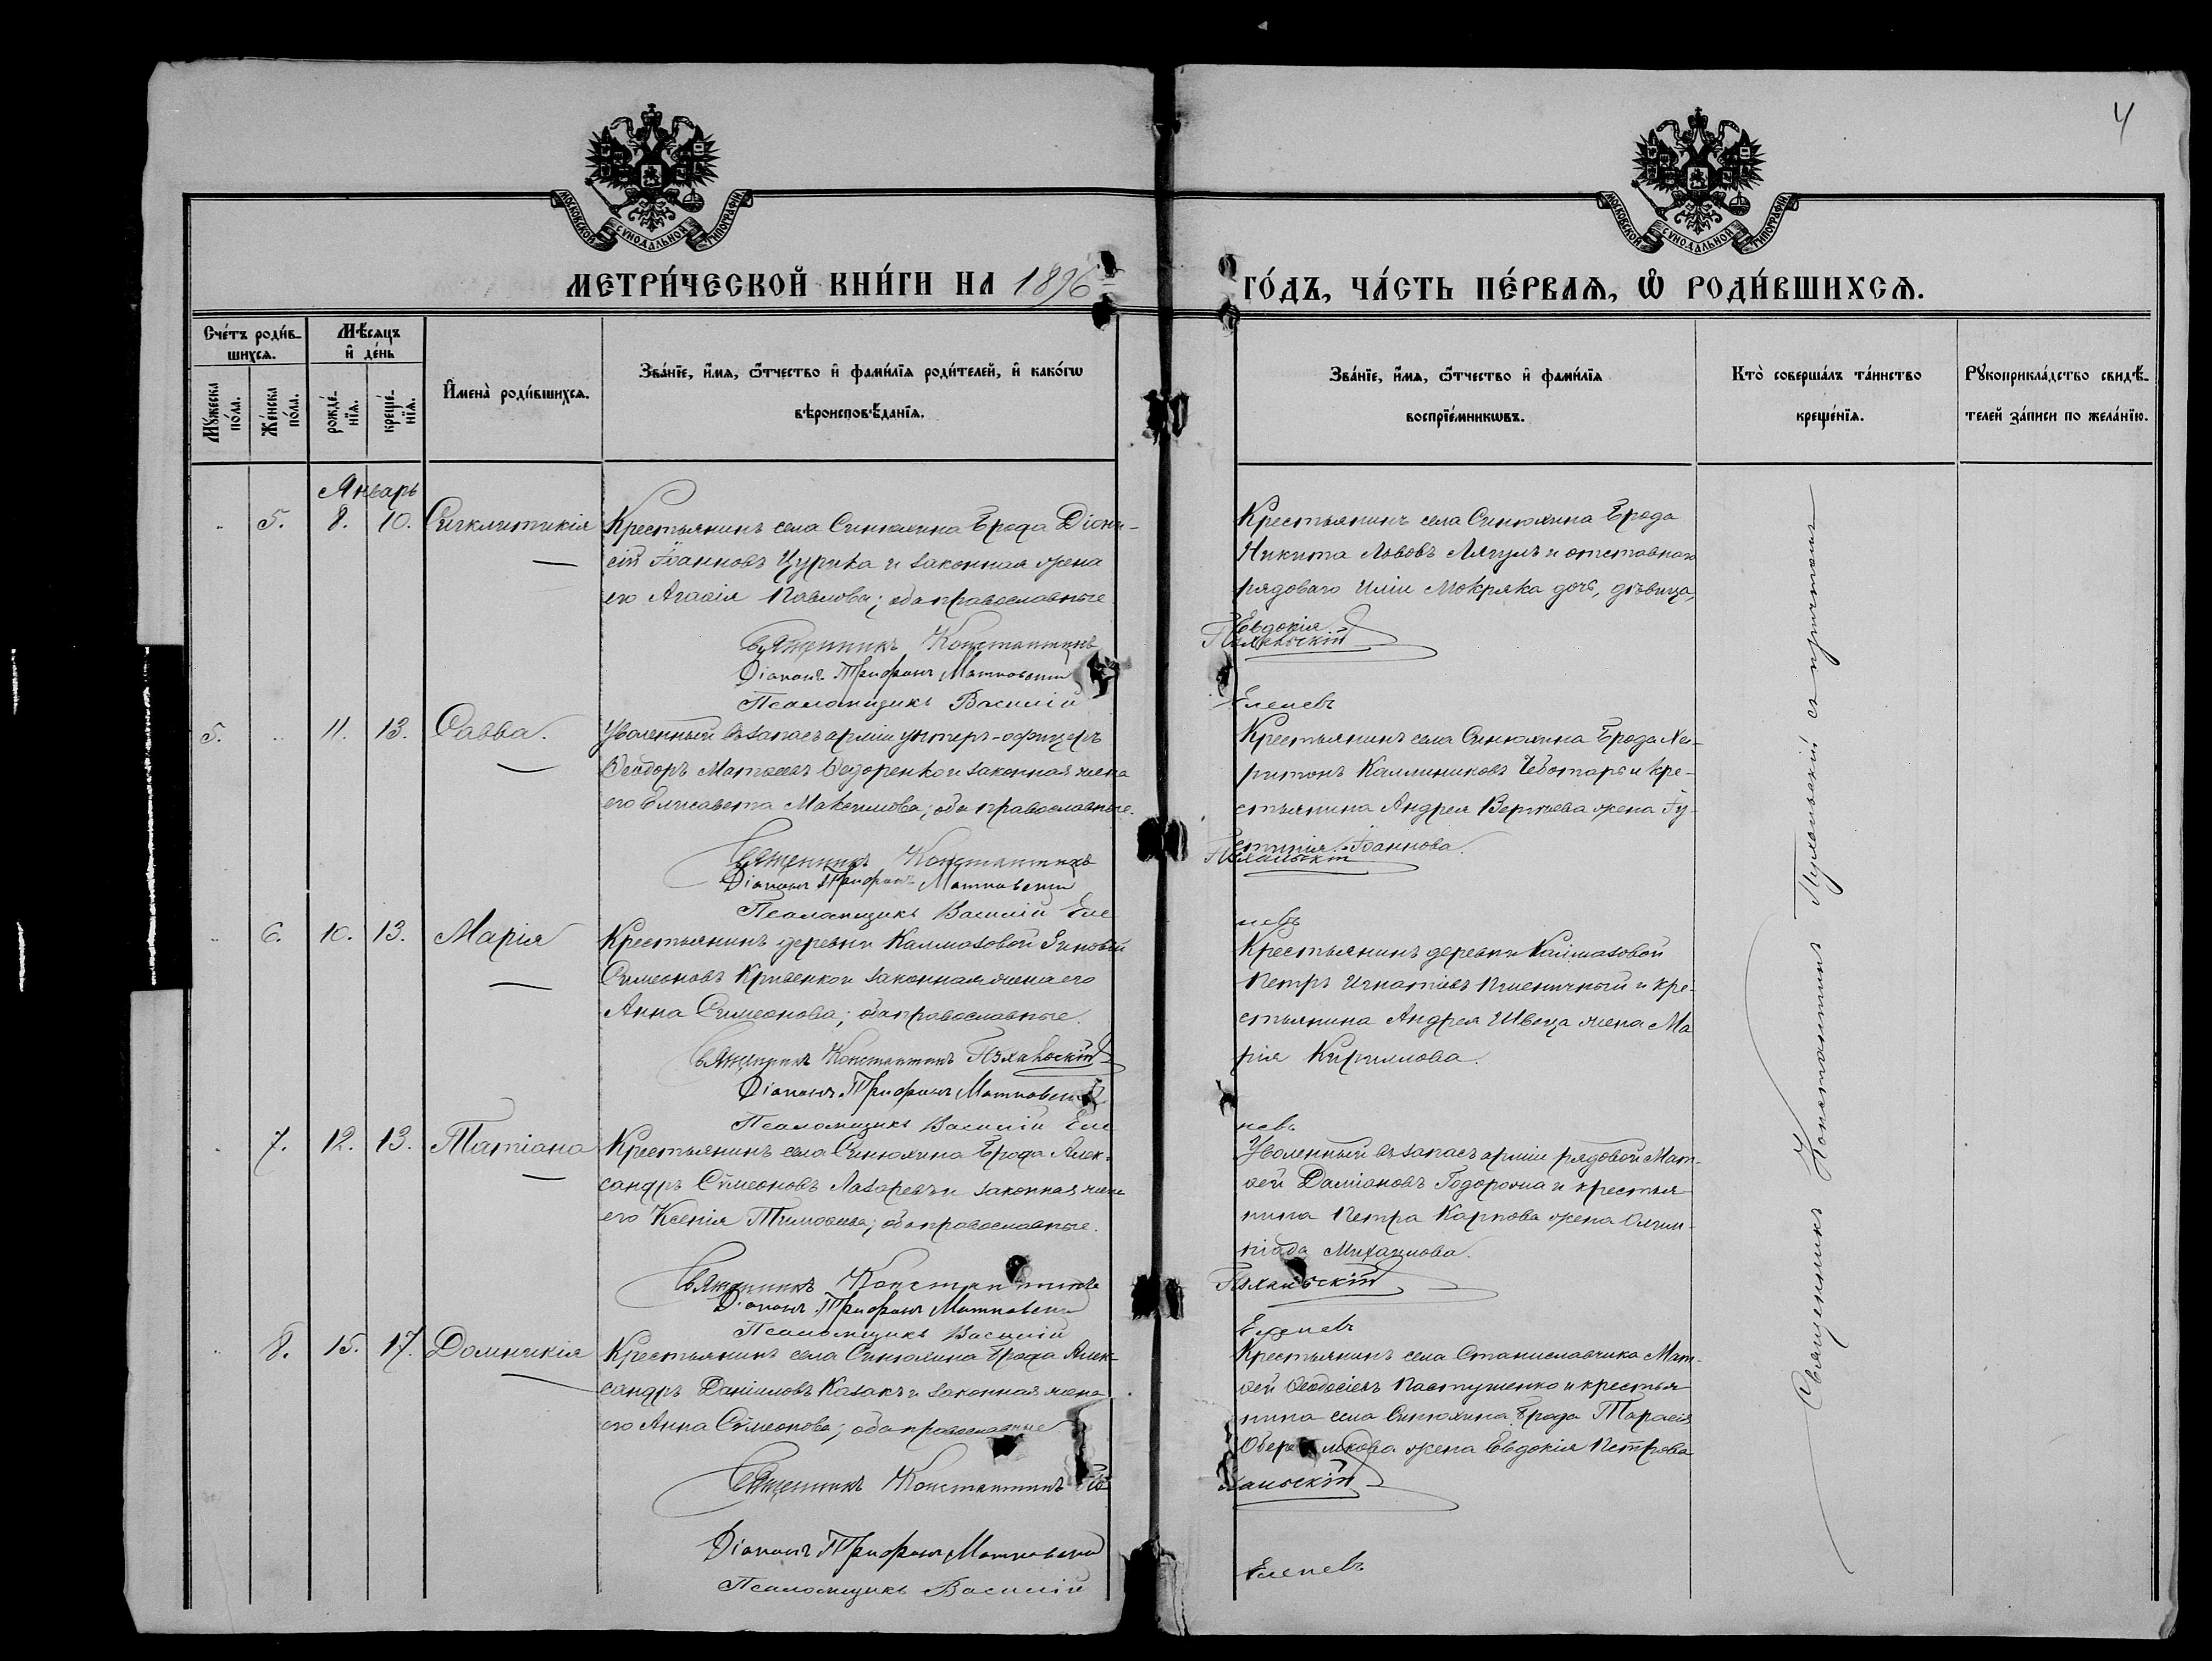 4
МОСКОВСКОЙ СѴНОДАЛЬНОЙ ТИПОГРАФІИ
МОСКОВСКОЙ СѴНОДАЛЬНОЙ ТИПОГРАФІИ
МЕТРИ́ЧЕСКОЙ КНИ́ГИ НА 1896
ГО́ДЪ, ЧА́СТЬ ПЕ́РВАЯ, Ѡ РОДИ́ВШИХСЯ.
Сче́тъ роди́в-
шихся.
Мꙋжеска
по́ла.
Же́нска
по́ла.
Мѣ́сяцъ
и҆ де́нь
рожде́-
нїя.
креще́-
нїя.
И҆мена̀ роди́вшихся.
Зва́нїе, и҆́мя, ѻ҆́тчество и҆ фами́лїя роди́телей, и҆ како́гѡ
вѣроисповѣ́данїя.
Зва́нїе, и҆́мя, ѻ҆́тчество и҆ фами́лїя
воспрїе́мникѡвъ.
Кто̀ соверша́лъ та́инство
креще́нїя.
Рꙋкоприкла́дство свидѣ́-
телей за́писи по жела́нїю.
Январь
5. 8. 10. Сигклитикія
Крестьянинъ села Синюхина Брода Діони-
сій Іоанновъ Цурика и законная жена
его Агаѳія Павлова; оба православные
Священникъ Константинъ
Діаконъ Трифонъ Матковскій
Псаломщикъ Василій
Крестьянинъ села Синюхина Брода
Никита Львовъ Лягулъ и отставнаго
рядоваго Иліи Мокряка дочь, дѣвица,
Евдокія
Пухальскій
Еленевъ
5. 11. 13. Савва.
Уволенный въ запасъ арміи унтеръ-офицеръ
Ѳеодоръ Матѳеевъ Ѳедоренко и законная жена
его Елисавета Максимова; оба православные.
Священникъ Константинъ
Діаконъ Трифонъ Матковскій
Псаломщикъ Василій Еле
Крестьянинъ села Синюхина Брода Ха-
ритонъ Каллиниковъ Чеботарь и кре-
стьянина Андрея жена Іу-
стинія Іоаннова.
Пухальскій
невъ
6. 10. 13. Марія
Крестьянинъ деревни Калмазовой Зиновій
Симеоновъ Кривенко и законная жена его
Анна Симеонова; оба православные.
Священникъ Константинъ Пухальскій
Діаконъ Трифонъ Матковскій
Псаломщикъ Василій Еле
Крестьянинъ деревни Калмазовой
Петръ Игнатіевъ Пшеничный и кре-
стьянина Андрея Швеца жена Ма
рія Кириллова.
невъ
7. 12. 13. Татіана
Крестьянинъ села Синюхина Брода Алек-
сандръ Сѵмеоновъ Лазаревъ и законная жена
его Ксенія Тимоѳеева; оба православные.
Священникъ Константинъ
Діаконъ Трифонъ Матковскій
Псаломщикъ Василій
Уволенный въ запасъ арміи рядовой Мат-
ѳей Даміановъ Тодорожа и крестья
нина Петра Карпова жена Олим-
піада Михаилова.
Пухальскій
Еленевъ
8. 15. 17. Домникія
Крестьянинъ села Синюхина Брода Алек-
сандръ Даніиловъ Казакъ и законная жена
его Анна Сѵмеонова; оба православные
Священникъ Константинъ Пу
Діаконъ Трифонъ Матковскій
Псаломщикъ Василій
Крестьянинъ села Станиславчика Мат-
ѳей Ѳеодосіевъ Пастушенко и крестья
нина села Синюхина Брода Тарасія
жена Евдокія Петрова
хальскій
Еленевъ
Священникъ Константинъ Пухальскій съ причтомъ